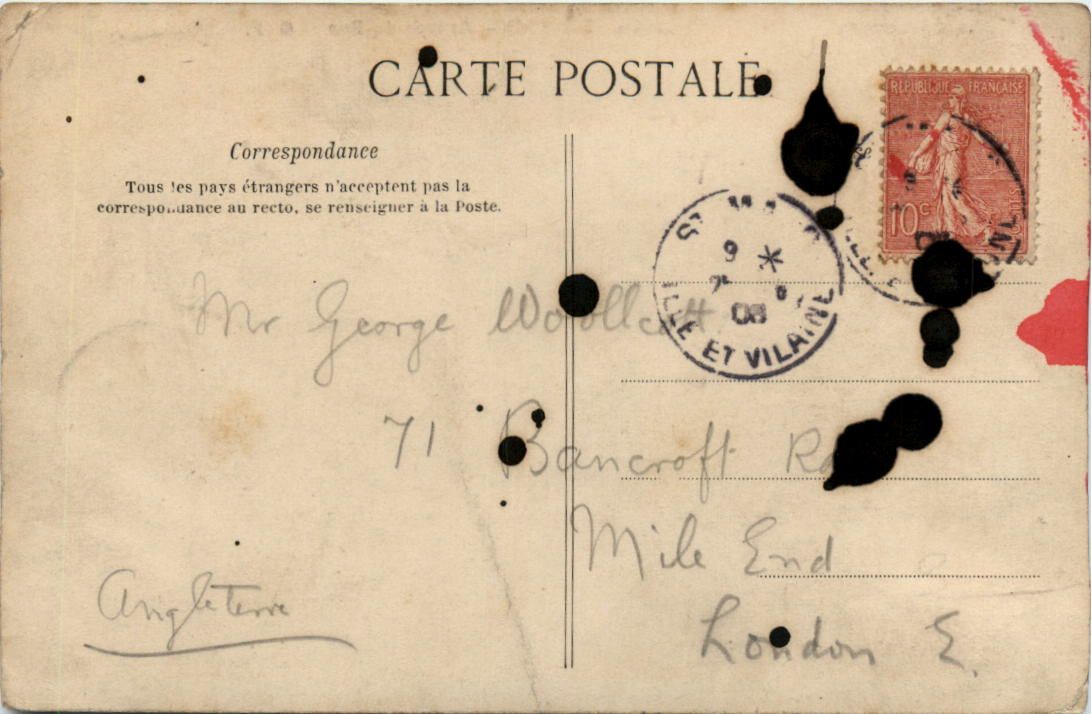 CARTE POSTALE
Correspondance
Tous les pays étrangers n'acceptent pas la
correspondance au recto, se renseigner à la Poste.
RÉPUBLIQUE FRANÇAISE
10c
9 *
08
ILLE ET VILAINE
Mr George Woollcott
71 Bancroft Rd
Mile End
London E.
Angleterre